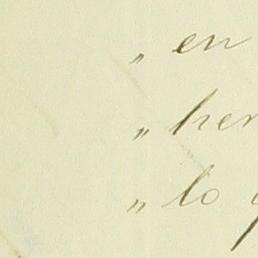 „ en
„ her
„ lo